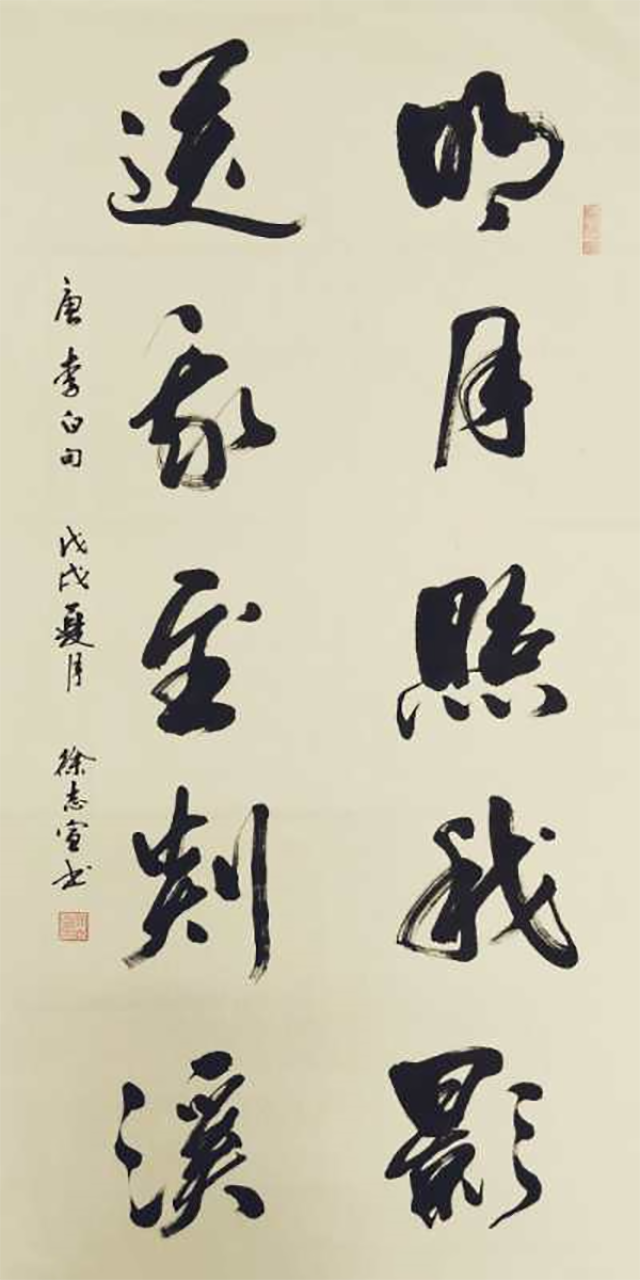 明月照我影
送我至剡溪
唐 李白句 戊戌夏月 徐志宣书